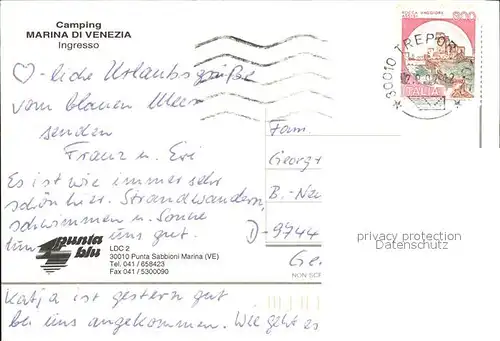 Camping
MARINA DI VENEZIA
Ingresso
♡-liche Urlaubsgrüße
vom blauen Meer
senden
Franz u. Evi
Es ist wie immer sehr
schön hier. Strandwandern,
schwimmen u. Sonne
tun uns gut.
punta
blu
LDC 2
30010 Punta Sabbioni Marina (VE)
Tel. 041 / 658423
Fax 041 / 5300090
Katja ist gestern gut
bei uns angekommen. Wie geht es
ROCCA MAGGIORE
ASSISI
800
ITALIA
30010 TREPOR
Fam.
Georg
B.-Na
D-9744
Ge
NON SCR
privacy protection
Datenschutz